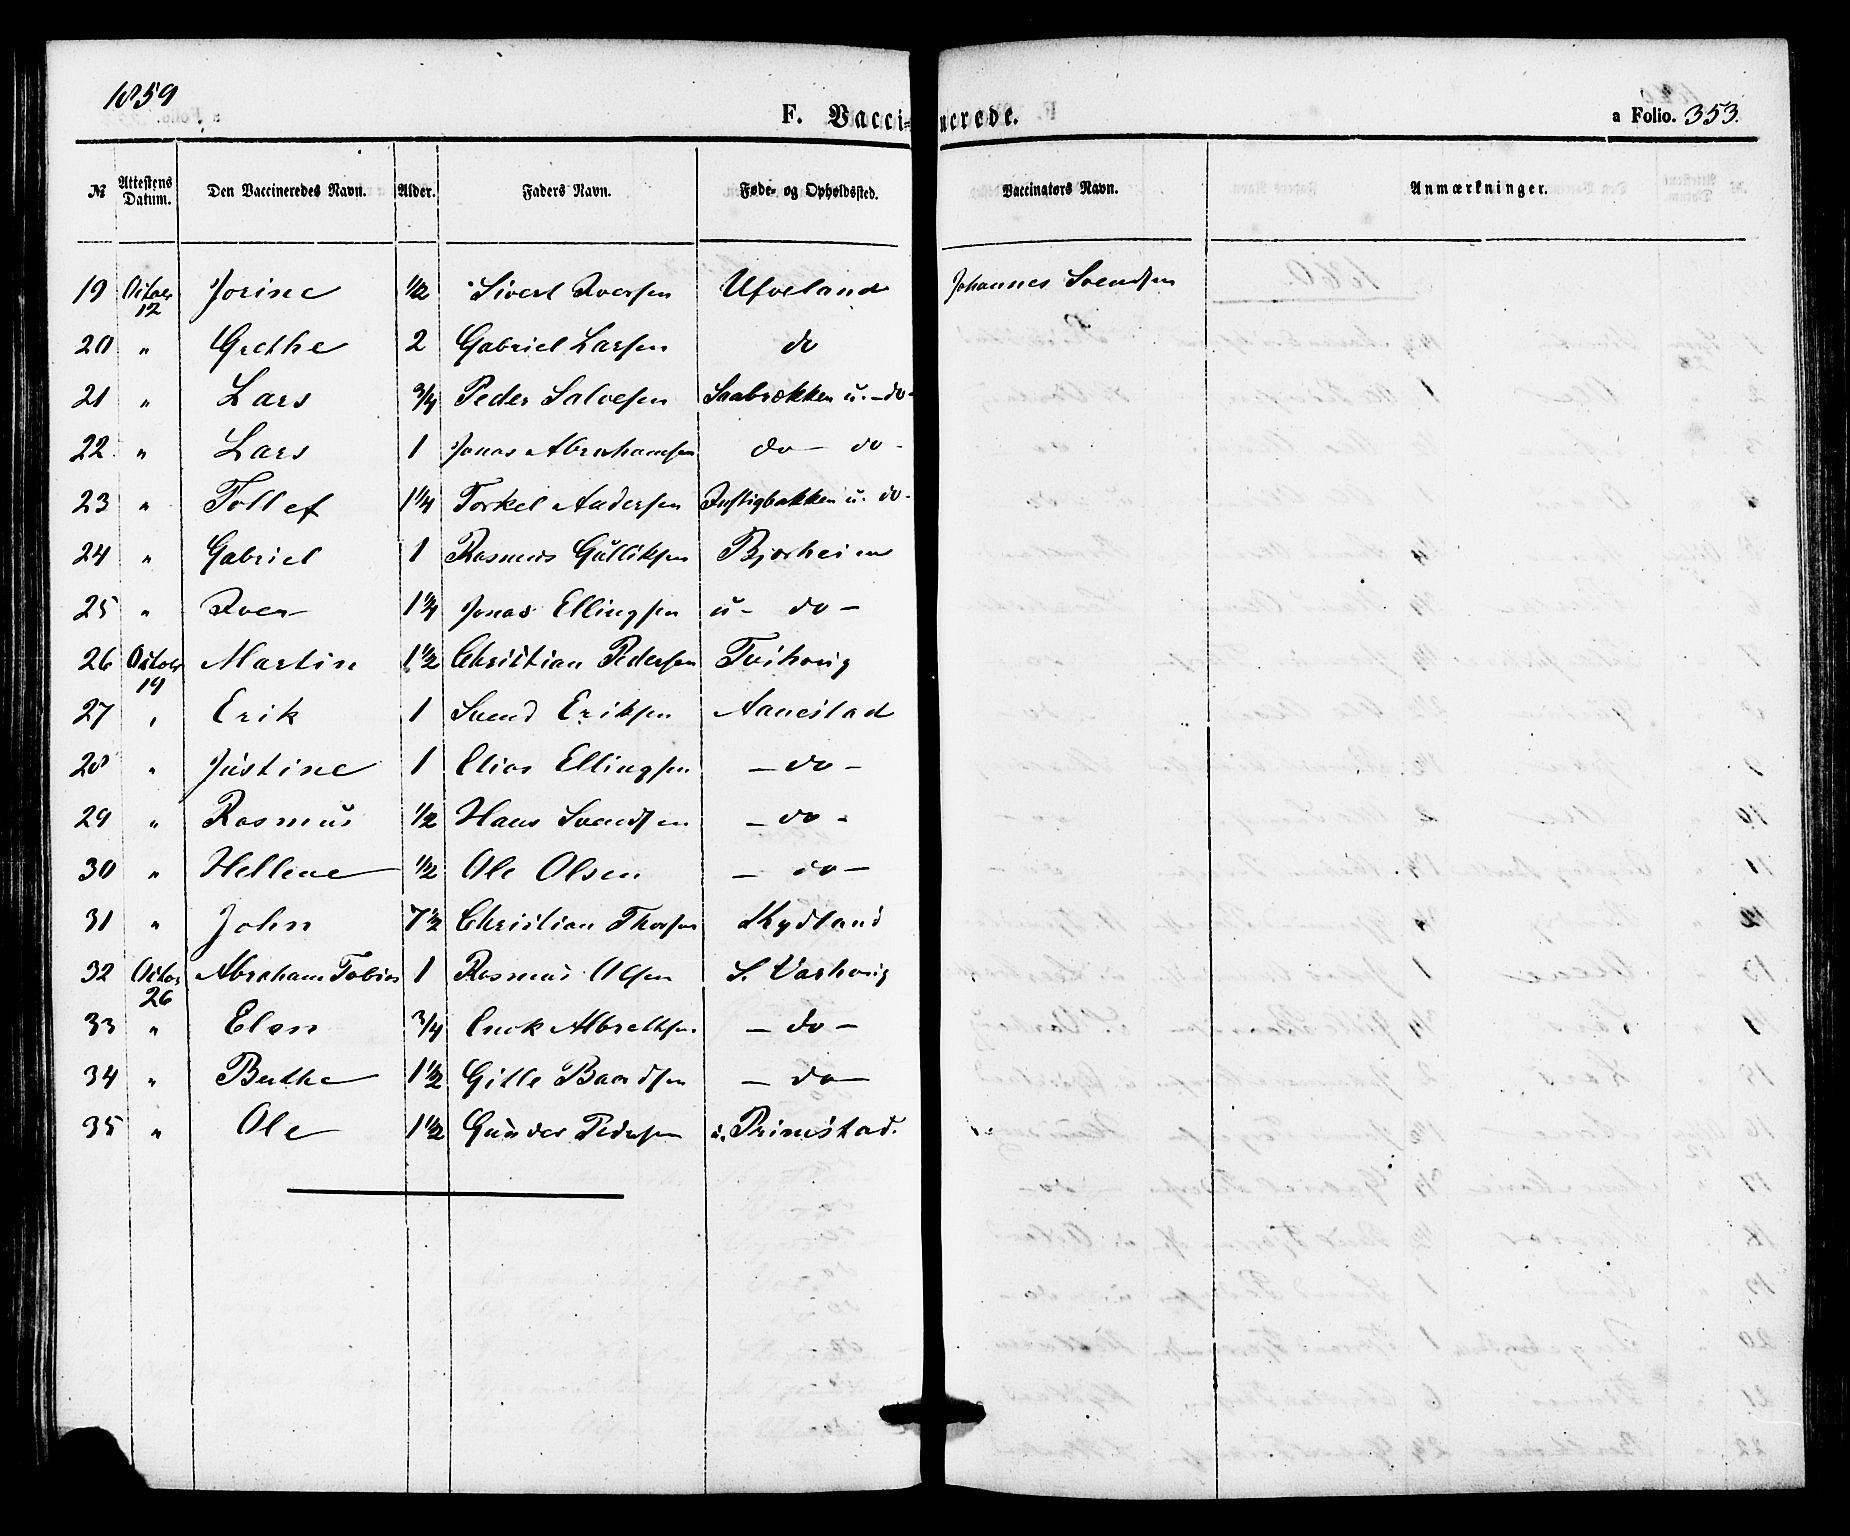 1859
F. Vaccinerede.
a Folio. 353.
№ Attestens Datum. Den Vaccineredes Navn. Alder. Faders Navn. Føde- og Opholdssted. Vaccinators Navn. Anmærkninger.
19 Octobr 12 Jorine 1/2 Sivert Iversen Ufveland Johannes Svendsen
20 " Grethe 2 Gabriel Larsen do
21 " Lars 3/4 Peder Salvesen Saabrækken u. - do -
22 " Lars 1 Jonas Abrahamsen do - do -
23 " Tollef 1 1/4 Torkel Andersen u. do -
24 " Gabriel 1 Rasmus Gulliksen Bjorheim
25 " Iver 1 1/4 Jonas Ellingsen u - do -
26 Octobr 19 Martin 1 1/2 Christian Pedersen Tvihoug
27 " Erik 1 Svend Eriksen Aanestad
28 " Justine 1 Elias Ellingsen - do -
29 " Rasmus 1/2 Hans Svendsen - do -
30 " Hellene 1/2 Ole Olsen - do -
31 " John 7 1/2 Christian Thorsen Kydland
32 Octobr 26 Abraham Tobias 1 Rasmus Olsen S. Varhoug
33 " Elen 3/4 Enok Albretsen - do -
34 " Berthe 1 1/2 Gitle Baardsen - do -
35 " Ole 1 1/2 Gunder Pedersen u. Primstad.